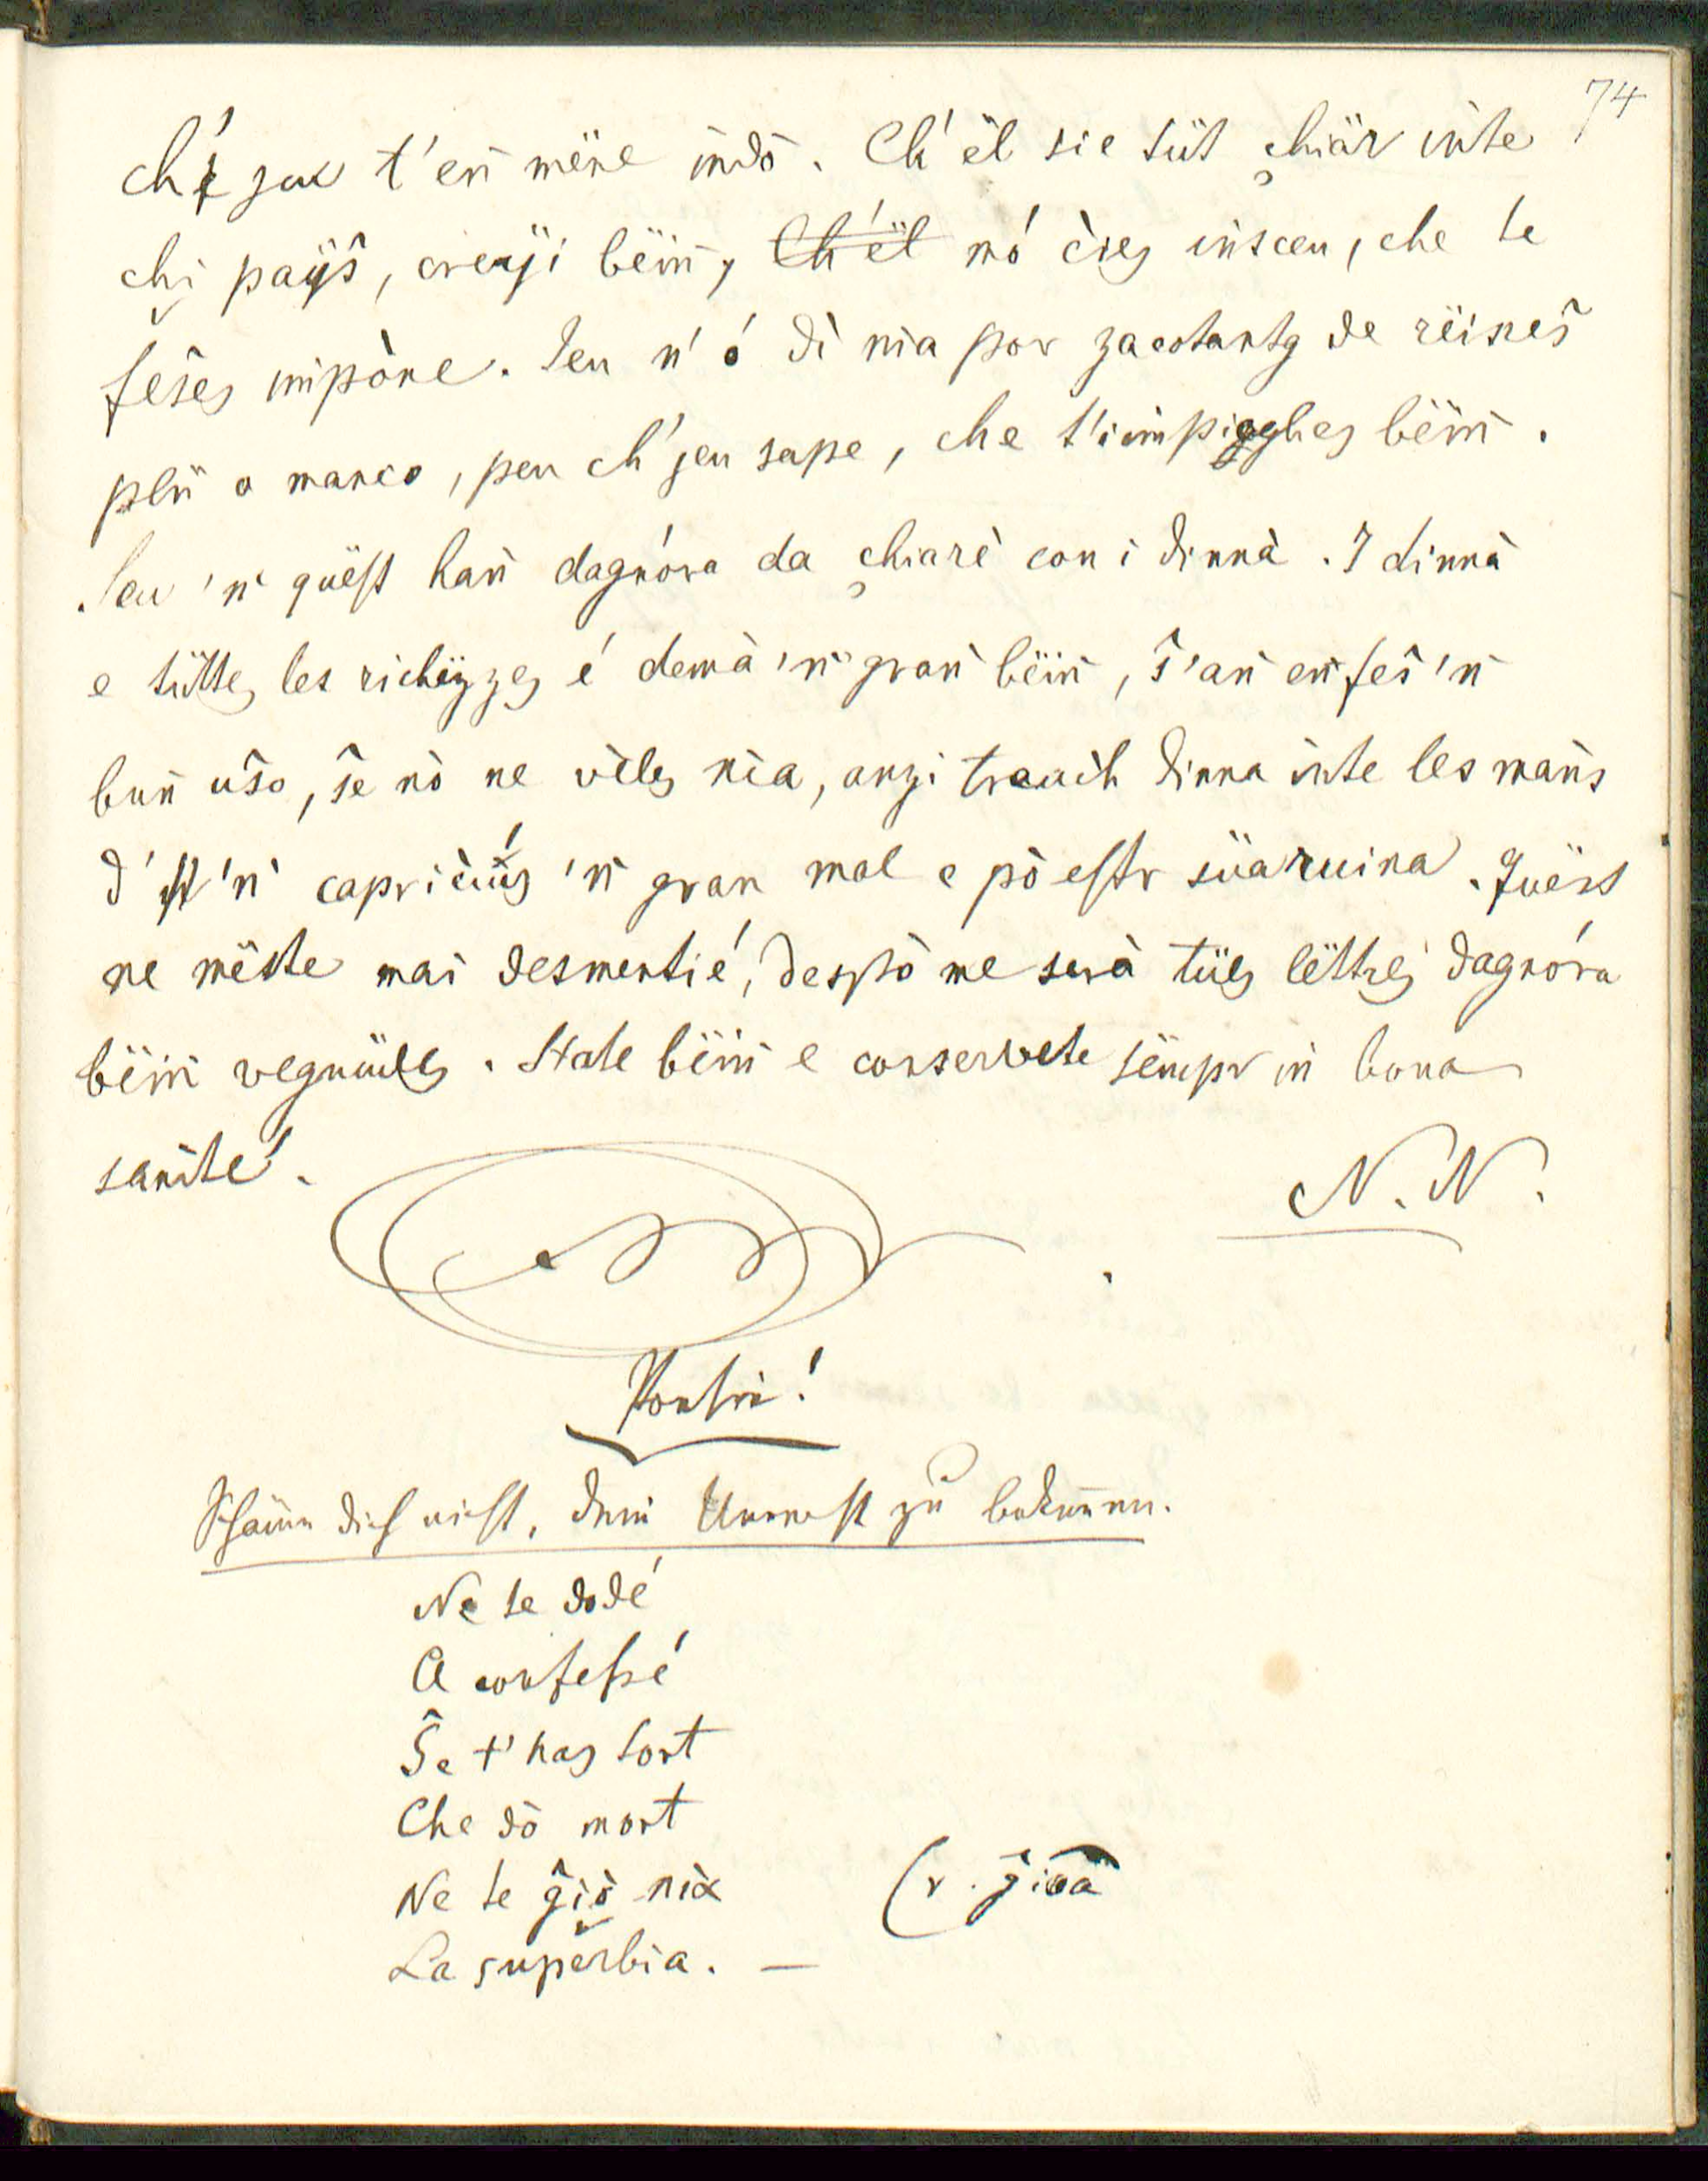 74
ch' jeu t'en mëne indô. Ch'ël sie tüt chiär inte
chi paÿš, creÿi bëiñ, Ch'ël nó ères insceu, che te
feses impòne. Jeu n'ó dì nia por zacotantg de rëines
plü o manco, peu ch'jeu sape, che t'impiegghes bëiñ.
Jeu 'n quëst hañ dagnóra da chiarè con i dinnà. I dinnà
e tütteg les richëzzes é demà 'n grañ bëiñ, š'añ eñ feš 'n
buñ ušo, še nò ne vèles nia, anzi trauih dinna inte les mañs
d' 'n capriciúŝ 'n gran mal e pò estr süa ruina. Quëst
ne mëtte mai desmentié, despò me serà tües lëttres dagnóra
bëiñ vegnüdes. State bëiñ e conservete sëmpr in bona
sanité.
N. N.
Schäme dich nicht, dein Unrecht zu bekennen.
Ne te dodé
A confessé
Še t'has tort
Che dò mort
Ne te ĝiò nia (r. ĝioà
La superbia. —